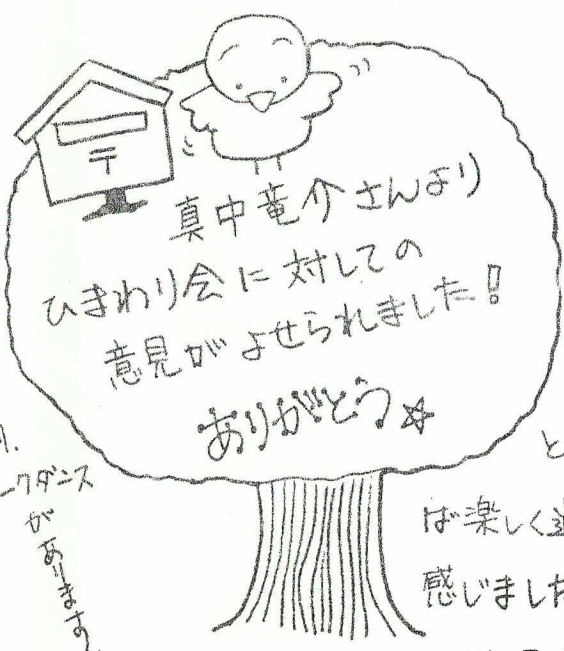 〒
真中竜介さんより
ひまわり会に対しての
意見がよせられました!
ありがとう☆
ークダンス
があります。
と
ば楽しく
感じました